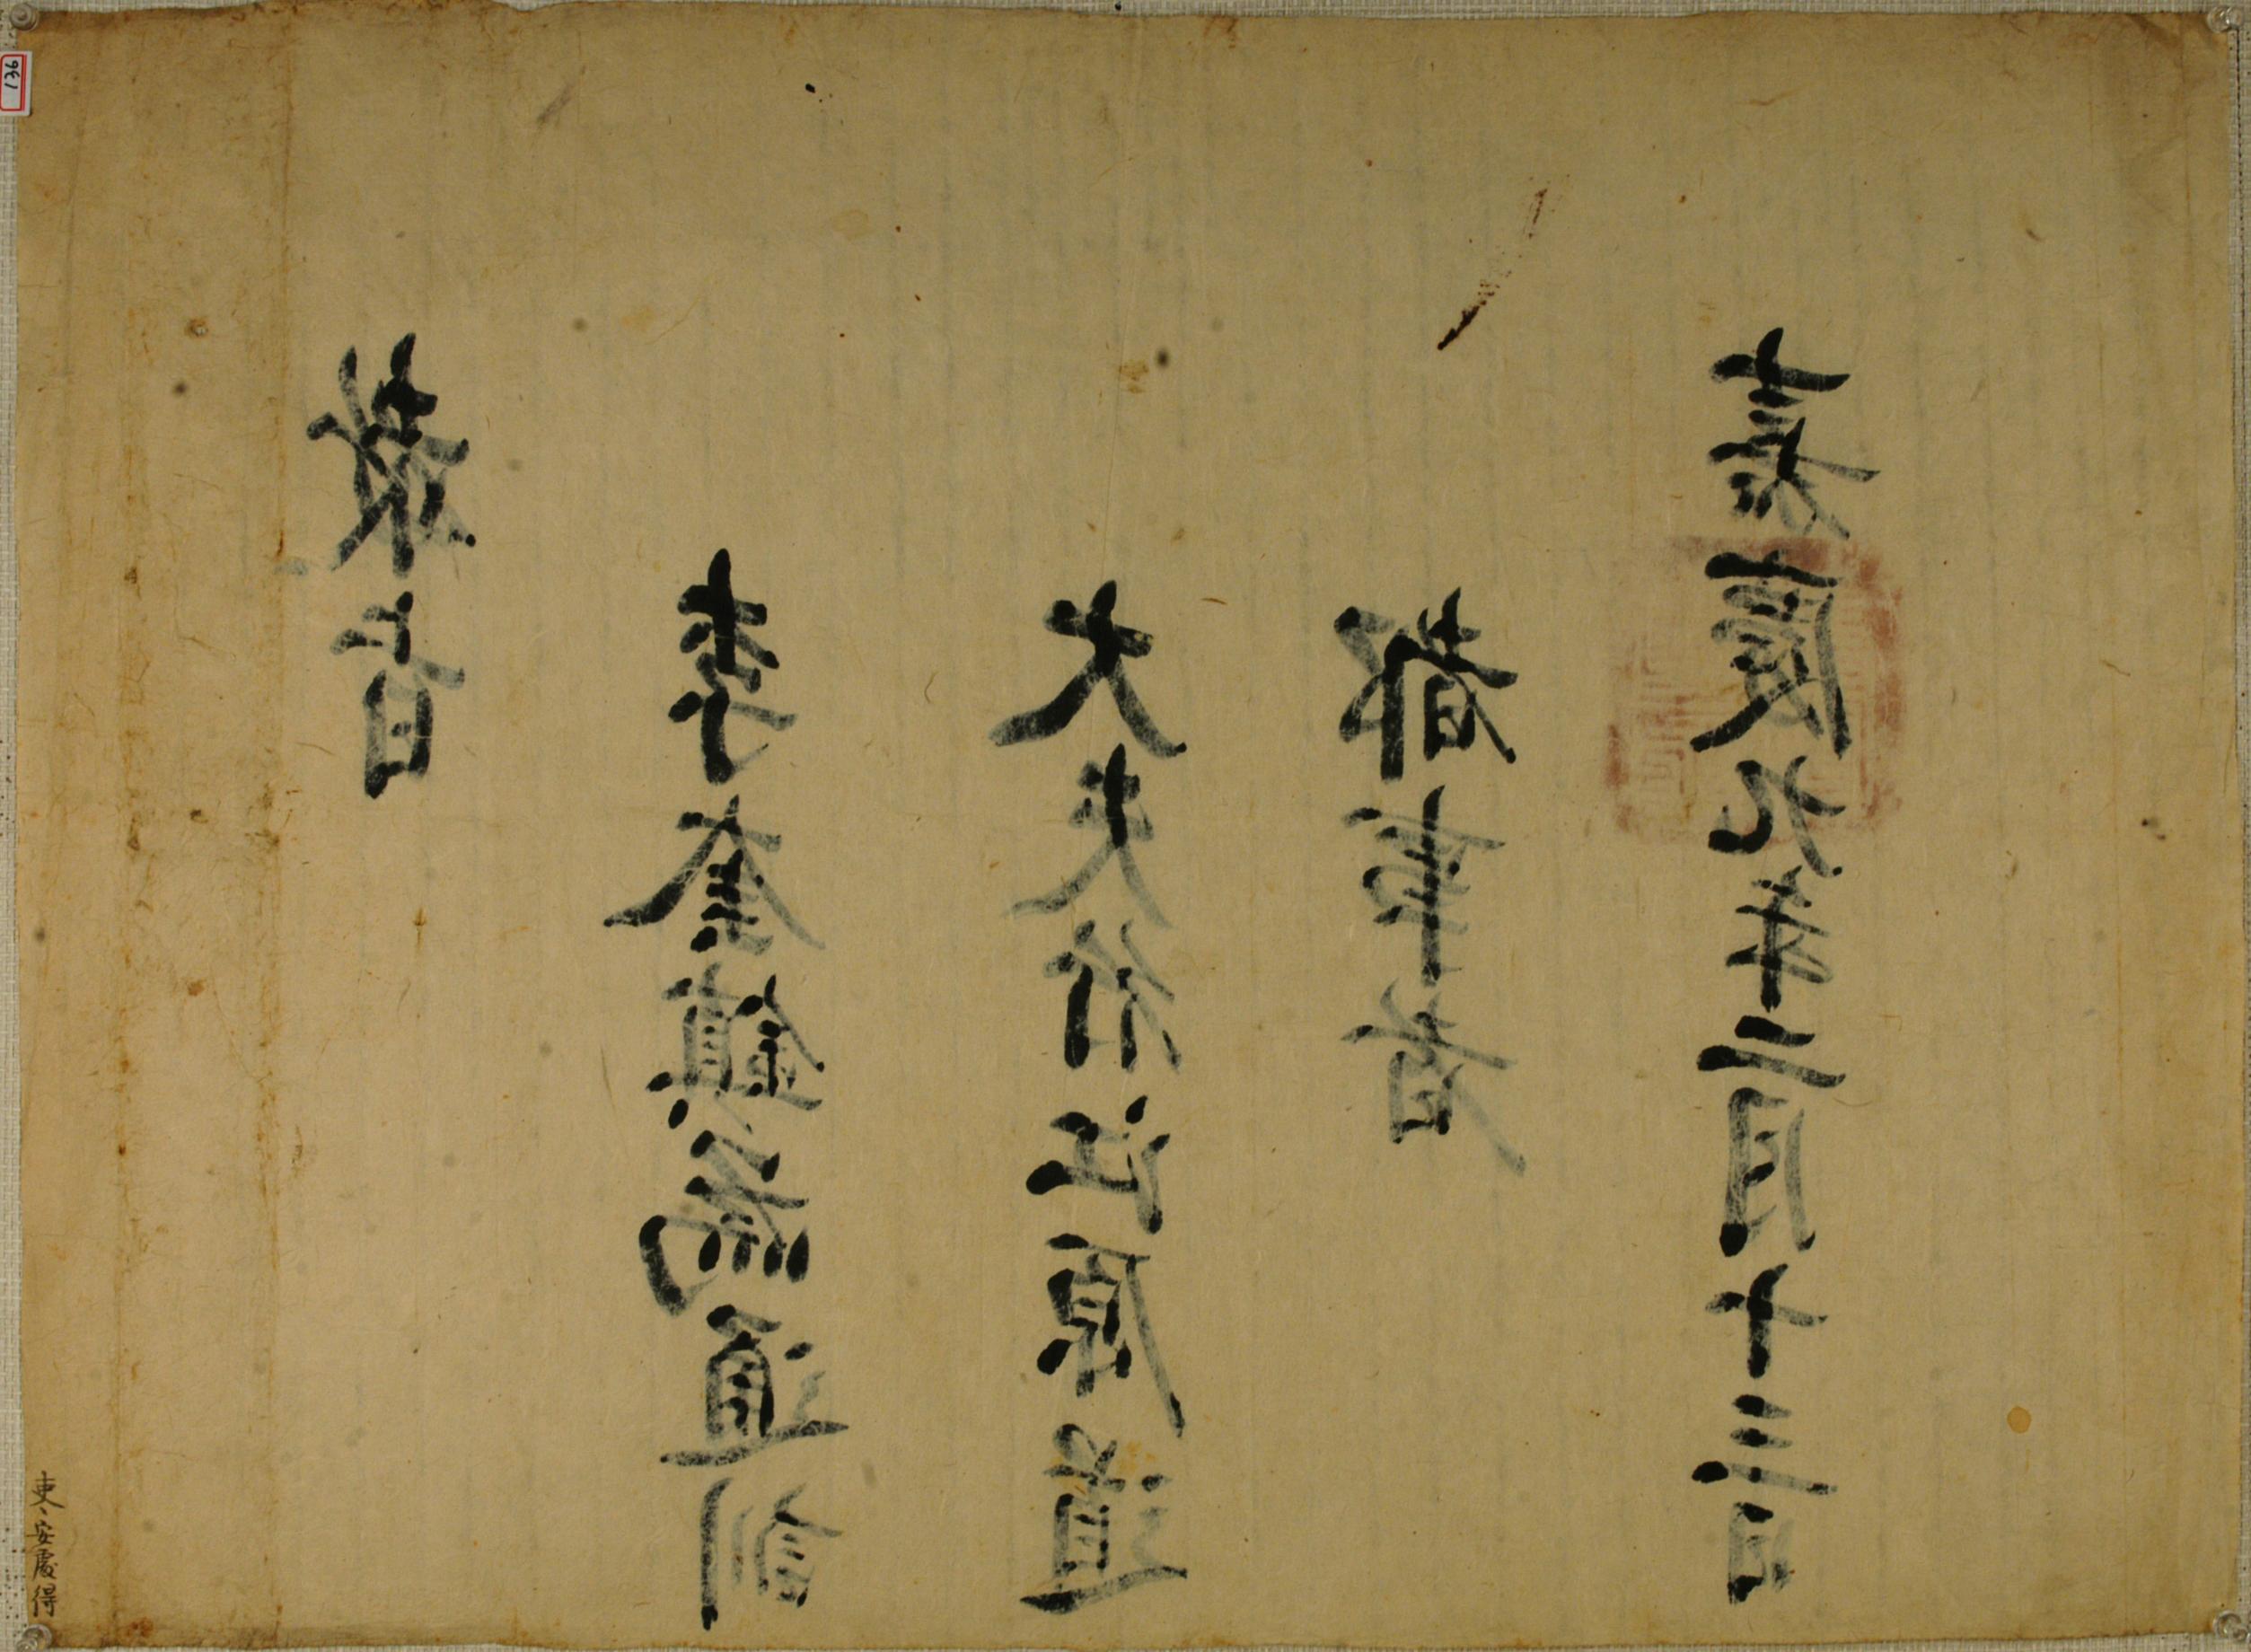 136
敎旨
李奎鎭爲通訓
大夫行江原道
都事者
嘉慶九年二月十三日
吏、安慶得